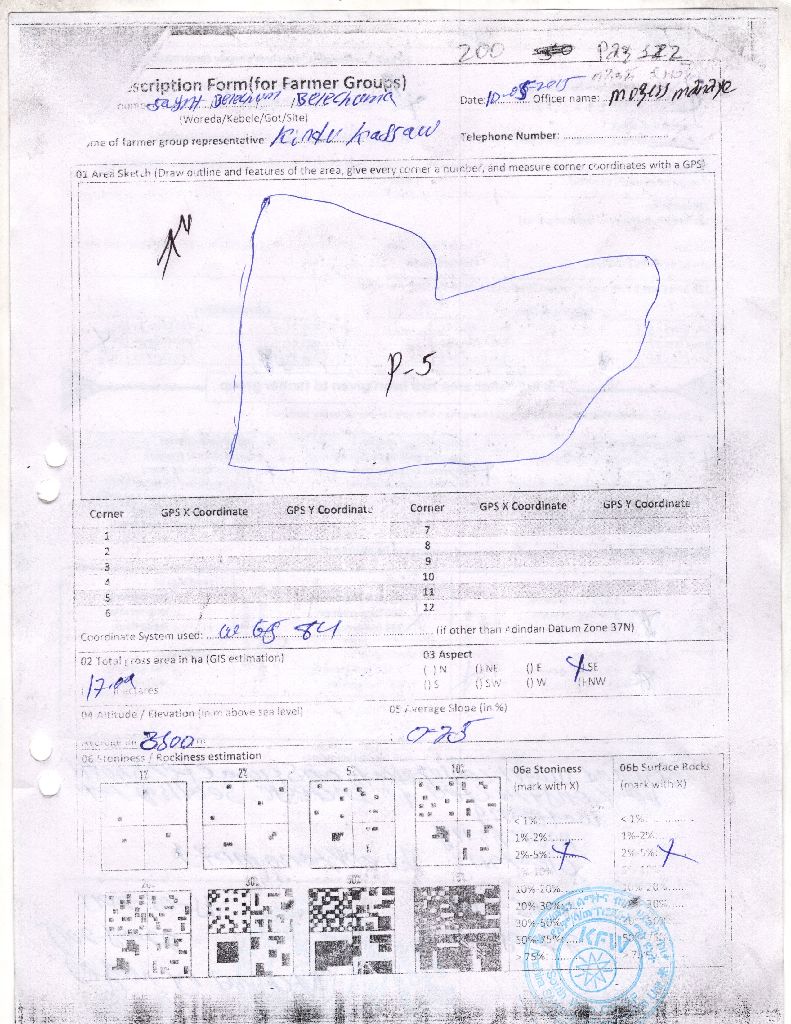 200 Pag 322
scription Form(for Farmer Groups)
Saynt Belechuma Belechuma
Date: 10-05-2015 Officer name: moges
(Woreda/Kebele/Got/Site)
me of farmer group representative Kindu Kassaw
Telephone Number:
01 Area Sketch (Draw outline and features of the area, give every corner a number, and measure corner coordinates with a GPS)
N
P-5
Corner GPS X Coordinate GPS Y Coordinate Corner GPS X Coordinate GPS Y Coordinate
1 7
2 8
3 9
4 10
5 11
6 12
Coordinate System used: WGS 84 (if other than Adindan Datum Zone 37N)
02 Total gross area in ha (GIS estimation)
17.09 hectares
03 Aspect
( ) N () NE () E X SE
() S () SW () W () NW
04 Altitude / Elevation (in m above sea level)
3500
05 Average Slope (in %)
0-25
06 Stoniness / Rockiness estimation
1% 2% 5% 10%
06a Stoniness 06b Surface Rocks
(mark with X) (mark with X)
<1% <1%
1%-2% 1%-2%
2%-5% X 2%-5% X
10%-20%
20%-30% 30%
30%-50% 50%
50%-75%
>75%
KFW